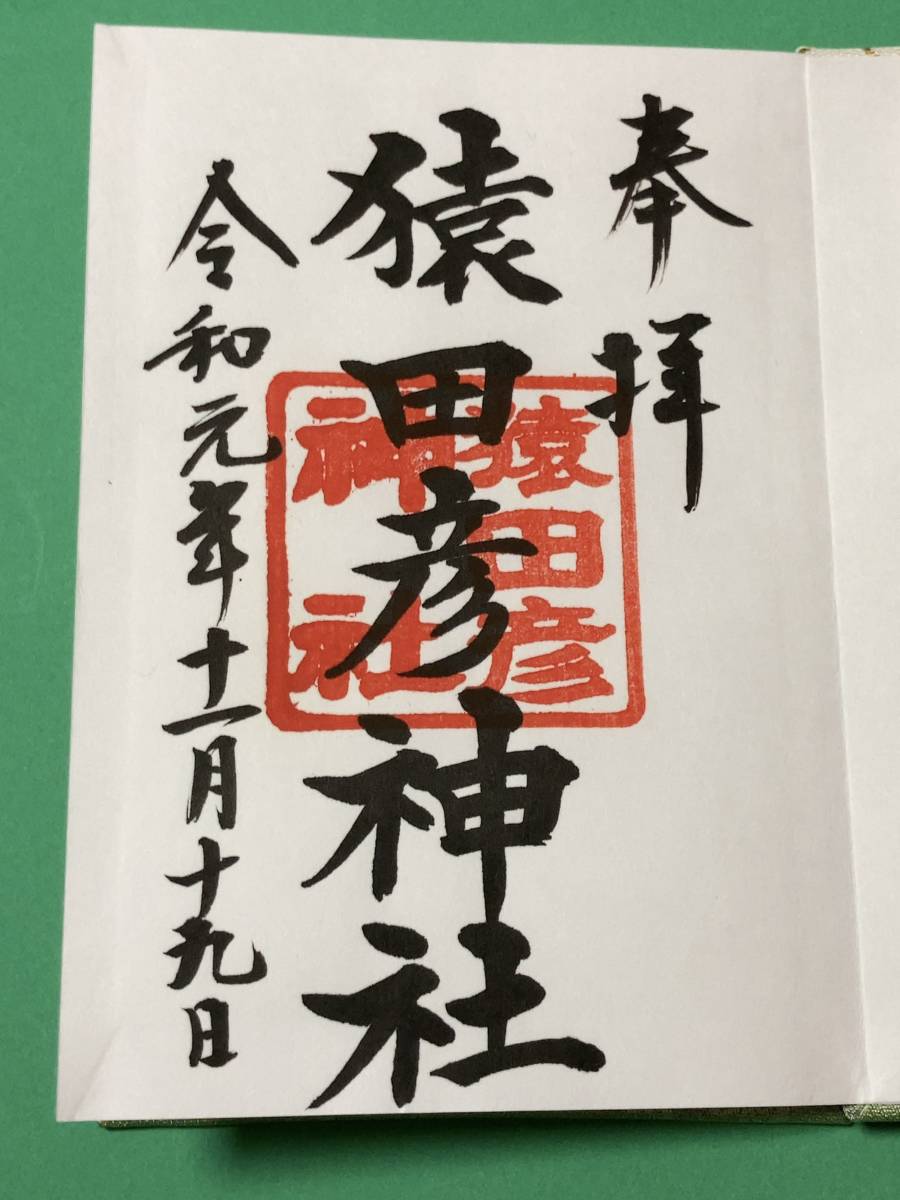 奉拝
猿田彦神社
猿田彦
神社
令和元年十一月十九日